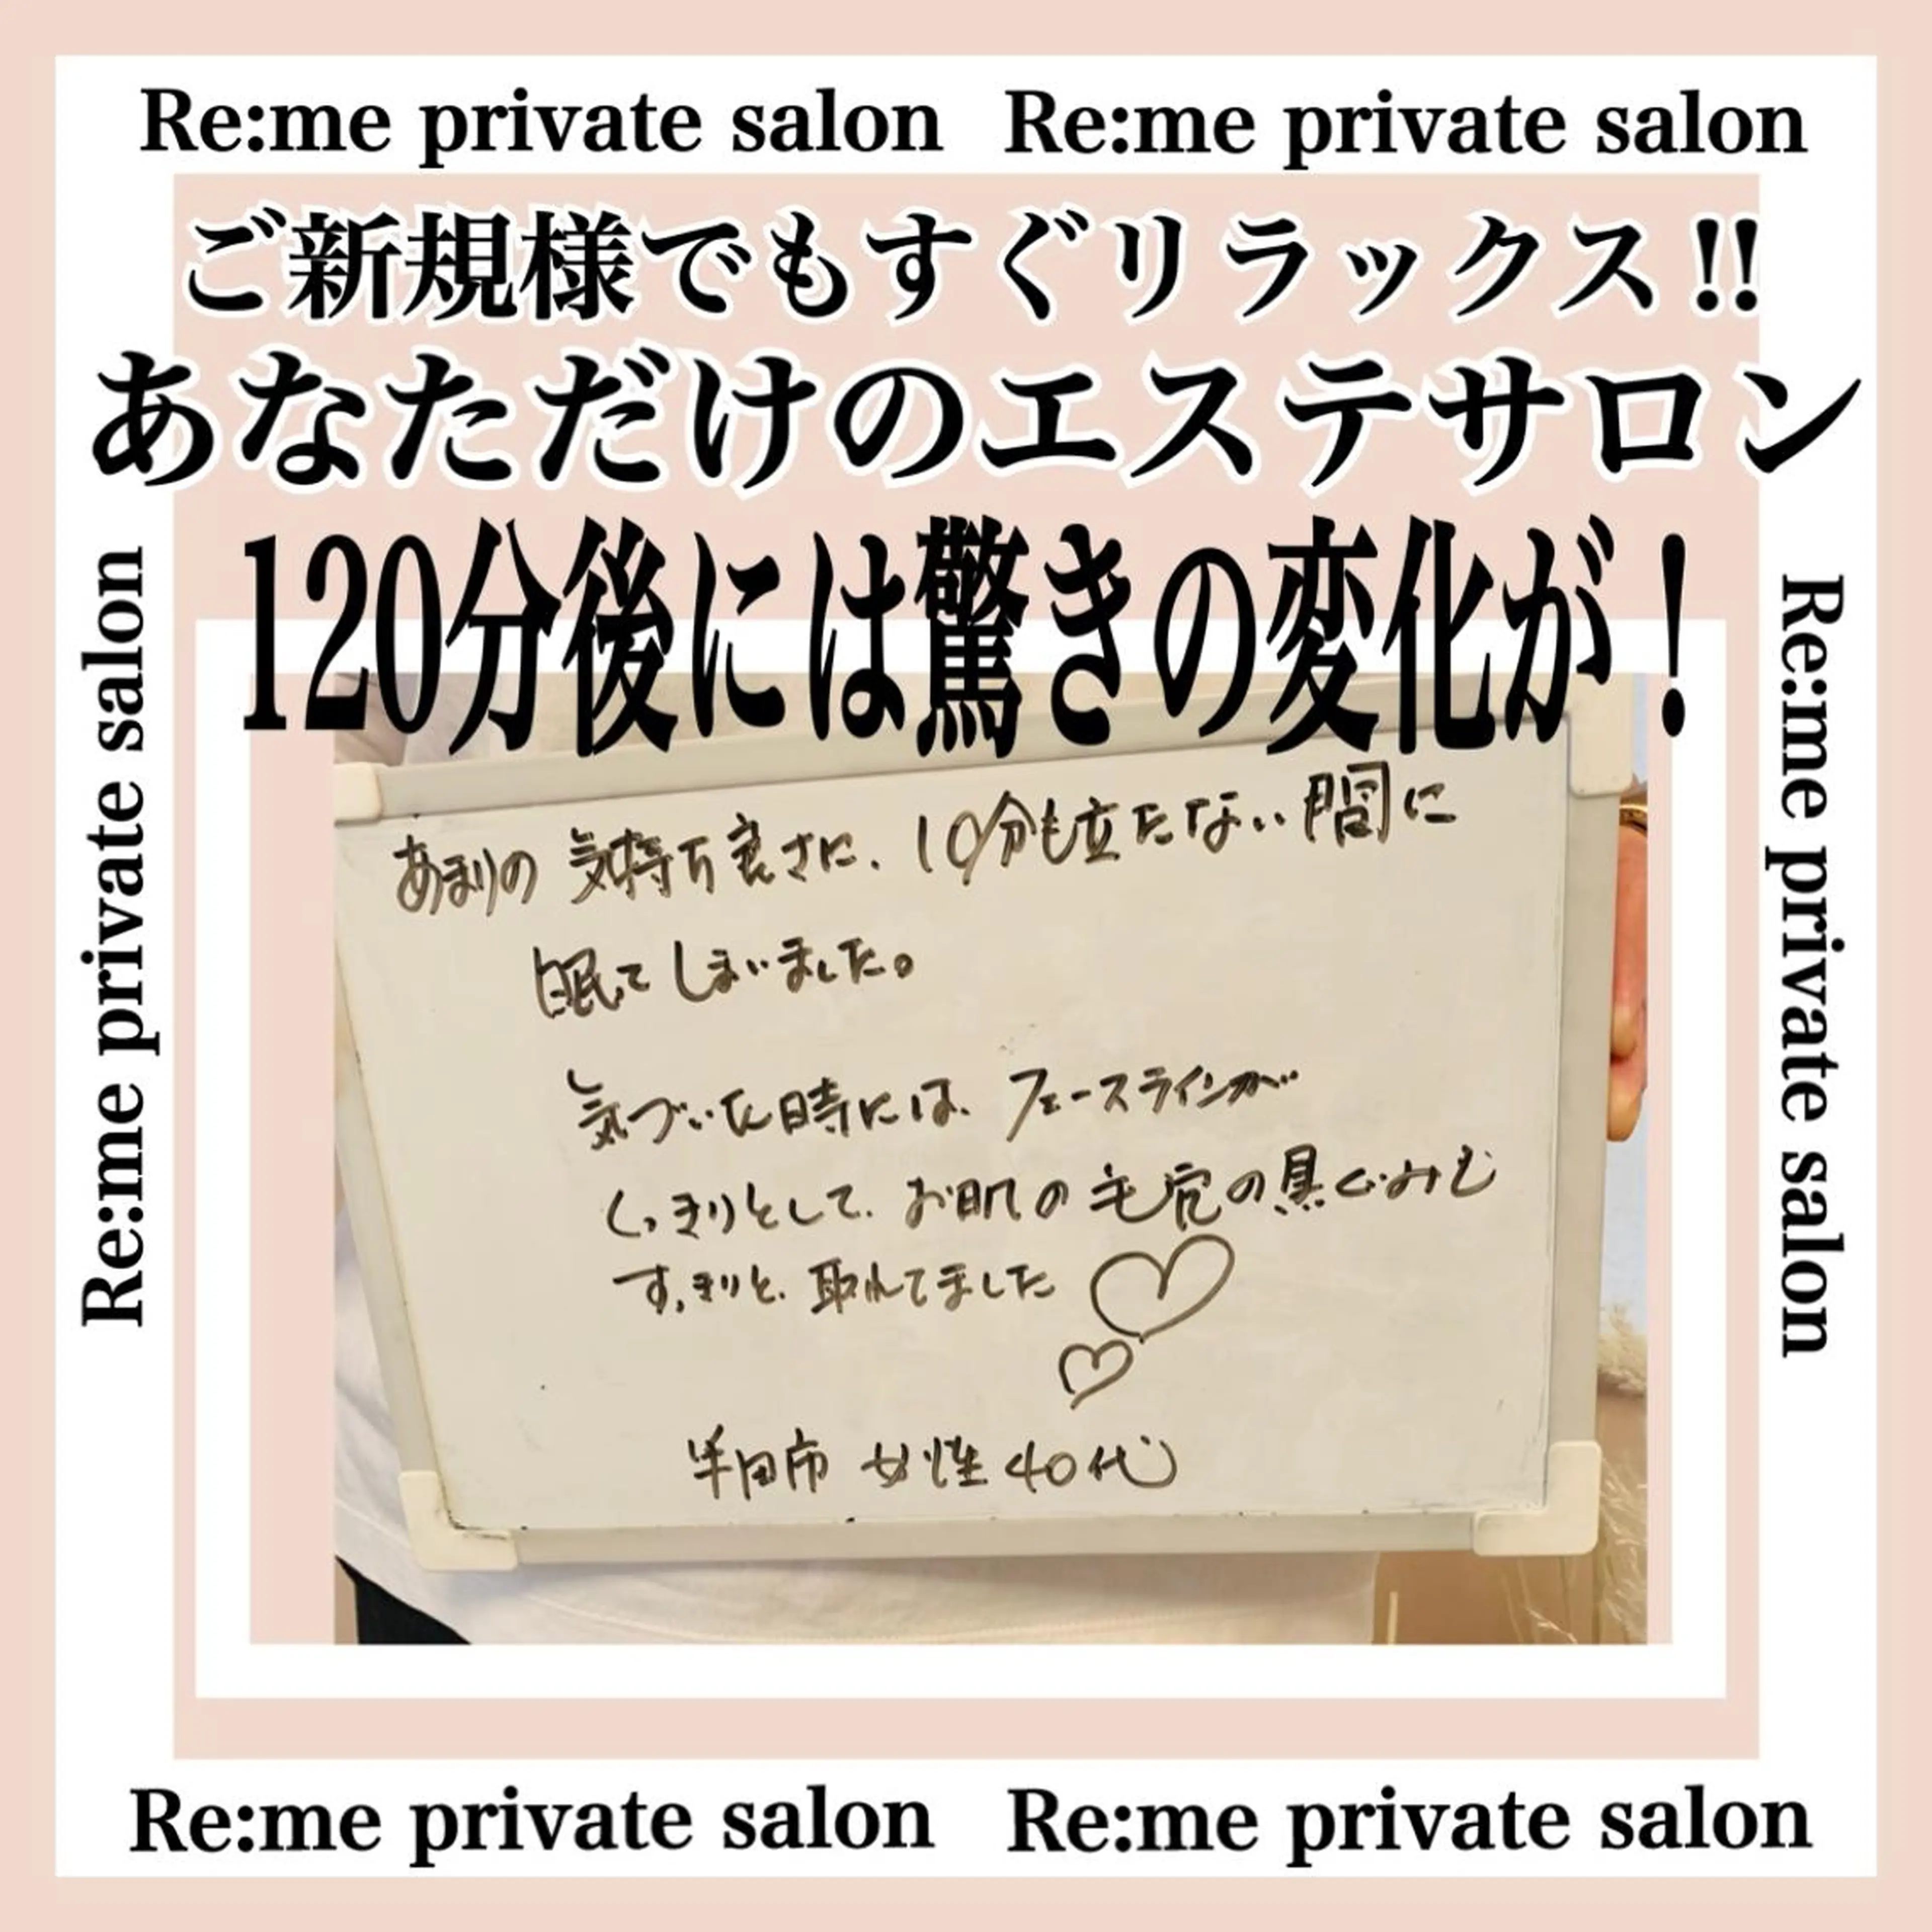 Re:me private salon Re:me private salon
ご新規様でもすぐリラックス!!
あなただけのエステサロン
120分後には驚きの変化が!
Re:me private salon
Re:me private salon
あまりの 気持ち良さに、10分も立たない間に
眠てしまいました。
気づいた時には、フェースラインが
くっきりとして、お肌の毛穴の黒ぐみも
すっきりと、取れてました
半田市 女性 40代
Re:me private salon Re:me private salon